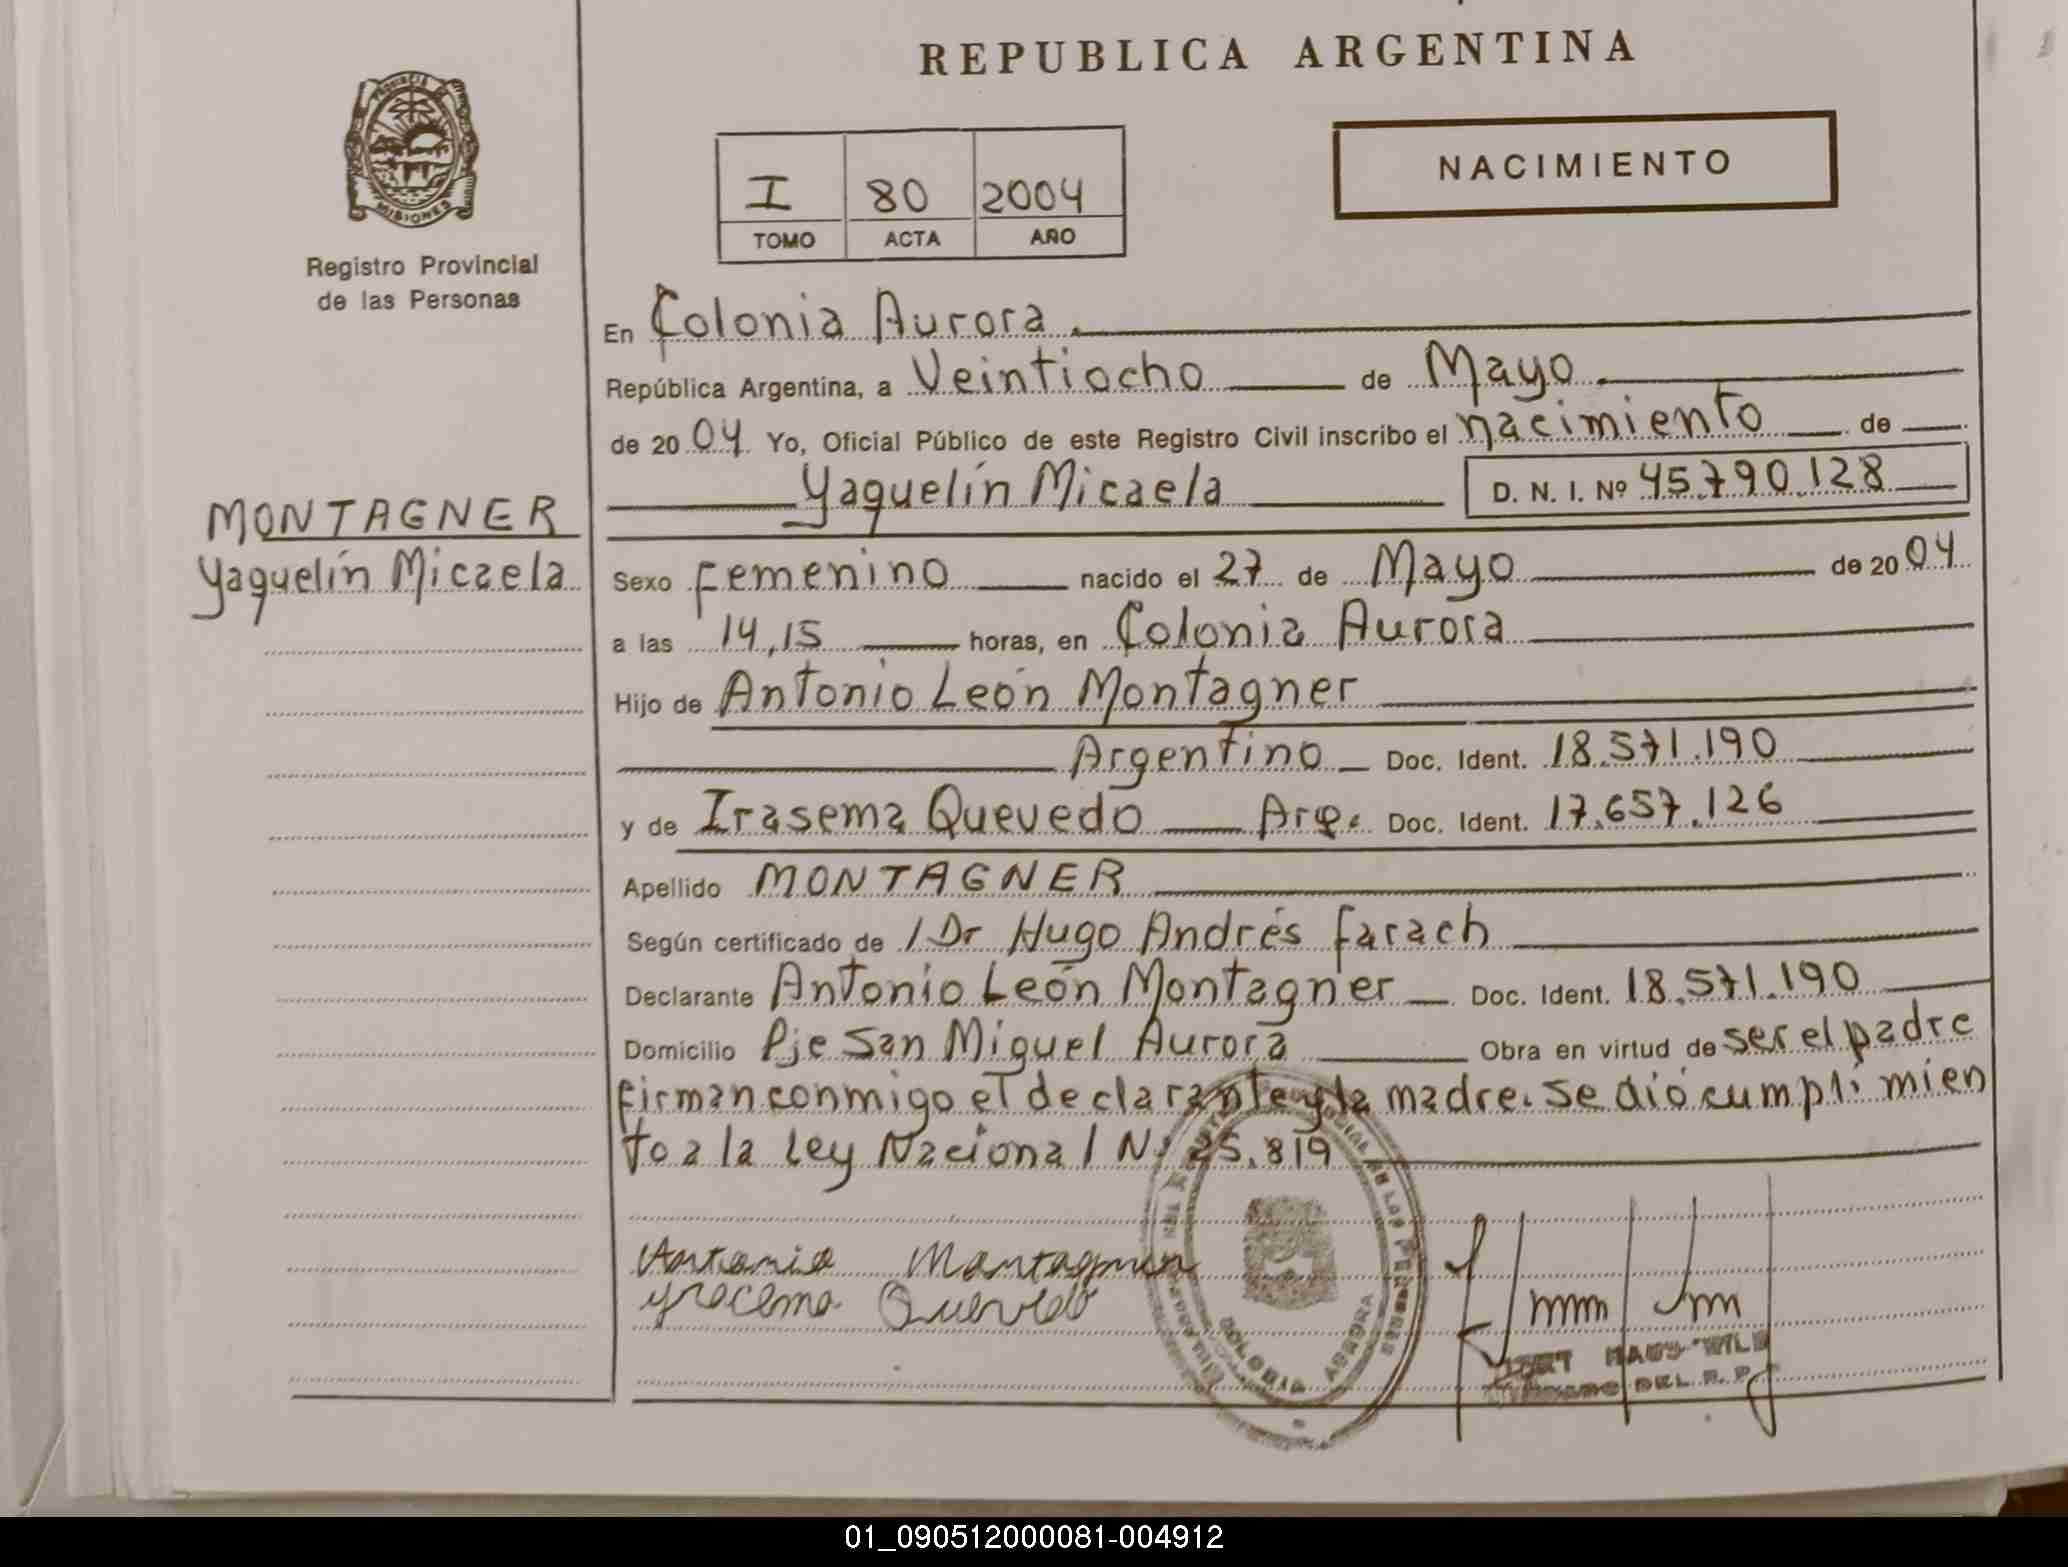 REPUBLICA ARGENTINA
PROVINCIA DE MISIONES
Registro Provincial
de las Personas
NACIMIENTO
I 80 2004
TOMO ACTA AÑO
En Colonia Aurora.
República Argentina, a Veintiocho de Mayo.
de 2004. Yo, Oficial Público de este Registro Civil inscribo el nacimiento de
Yaquelín Micaela D. N. I. Nº 45.790.128
MONTAGNER
Yaquelín Micaela
Sexo Femenino nacido el 27 de Mayo de 2004
a las 14,15 horas, en Colonia Aurora
Hijo de Antonio León Montagner
Argentino Doc. Ident. 18.571.190
y de Irasema Quevedo Arg. Doc. Ident. 17.657.126
Apellido MONTAGNER
Según certificado de / Dr Hugo Andrés Farach
Declarante Antonio León Montagner Doc. Ident. 18.571.190
Domicilio Pje San Miguel Aurora Obra en virtud de ser el padre
Firman conmigo el declarante y la madre. Se dió cumplimien
to a la Ley Nacional N: 25.819
Antonio Montagner
Yracema Quevedo
COLONIA AURORA
DEL R. P.
01_090512000081-004912